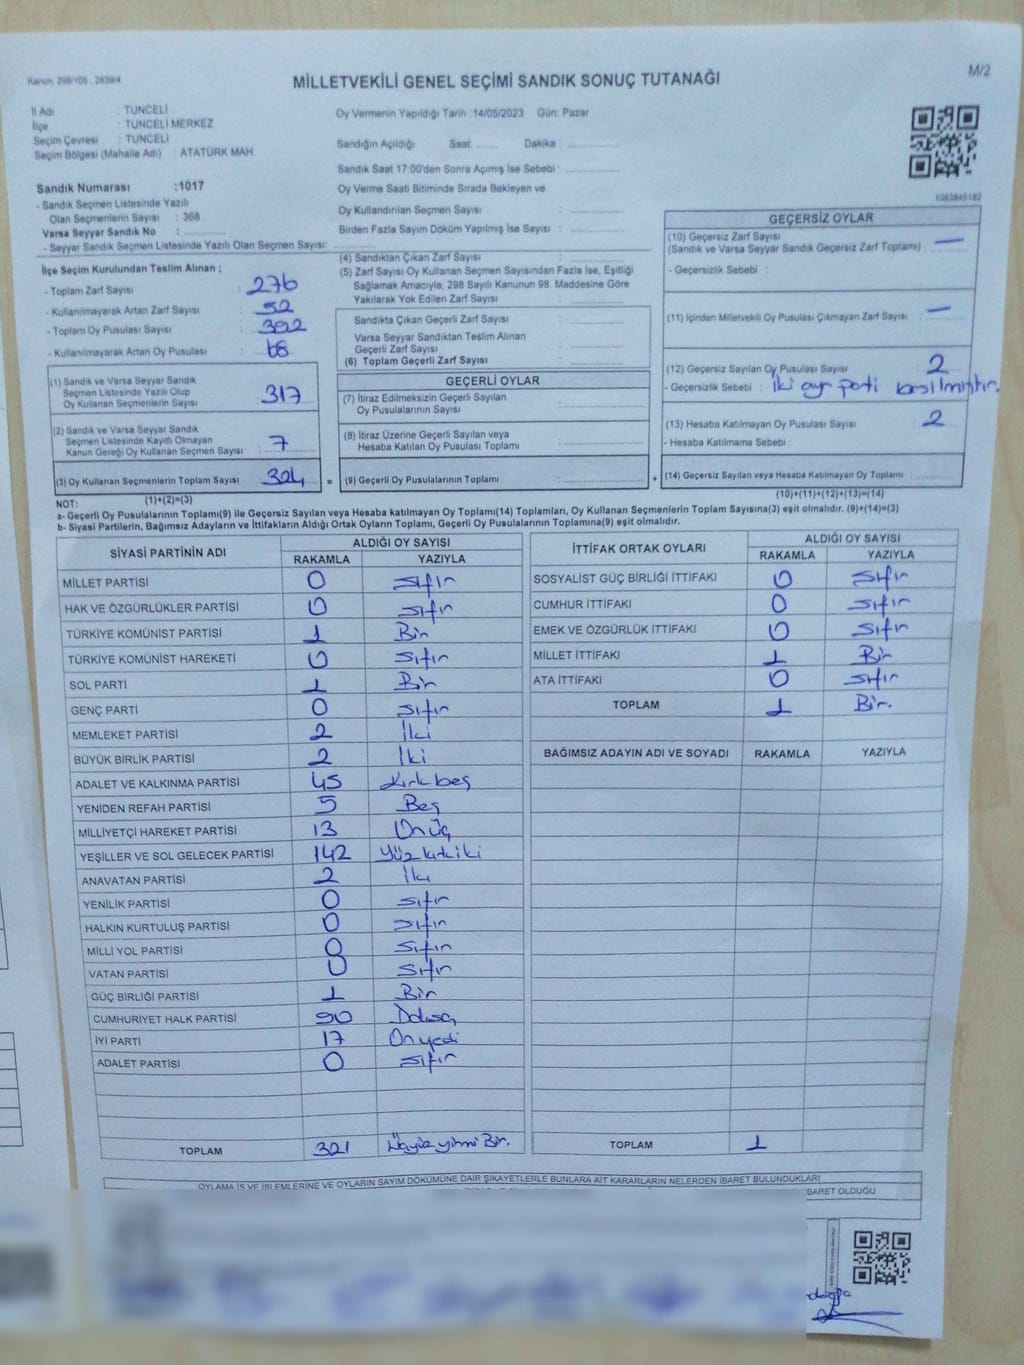 Kanun: 298/105 . 2839/4
MİLLETVEKİLİ GENEL SEÇİMİ SANDIK SONUÇ TUTANAĞI
M/2
İl Adı : TUNCELİ
İlçe : TUNCELİ MERKEZ
Seçim Çevresi : TUNCELİ
Seçim Bölgesi (Mahalle Adı) : ATATÜRK MAH
Sandık Numarası :1017
- Sandık Seçmen Listesinde Yazılı
Olan Seçmenlerin Sayısı : 368
Varsa Seyyar Sandık No :
- Seyyar Sandık Seçmen Listesinde Yazılı Olan Seçmen Sayısı:
Oy Vermenin Yapıldığı Tarih :14/05/2023 Gün: Pazar
Sandığın Açıldığı Saat: Dakika :
Sandık Saat 17:00'den Sonra Açımış İse Sebebi :
Oy Verme Saati Bitiminde Sırada Bekleyen ve
Oy Kullandırılan Seçmen Sayısı :
Birden Fazla Sayım Döküm Yapılmış İse Sayısı :
1083645182
İlçe Seçim Kurulundan Teslim Alınan ;
- Toplam Zarf Sayısı : 276
- Kullanılmayarak Artan Zarf Sayısı : 52
- Toplam Oy Pusulası Sayısı : 392
- Kullanılmayarak Artan Oy Pusulası : 68
(1) Sandık ve Varsa Seyyar Sandık
Seçmen Listesinde Yazılı Olup
Oy Kullanan Seçmenlerin Sayısı : 317
(2) Sandık ve Varsa Seyyar Sandık
Seçmen Listesinde Kayıtlı Olmayan
Kanun Gereği Oy Kullanan Seçmen Sayısı : 7
(3) Oy Kullanan Seçmenlerin Toplam Sayısı : 324
(1)+(2)=(3)
(4) Sandıktan Çıkan Zarf Sayısı :
(5) Zarf Sayısı Oy Kullanan Seçmen Sayısından Fazla İse, Eşitliği
Sağlamak Amacıyla; 298 Sayılı Kanunun 98. Maddesine Göre
Yakılarak Yok Edilen Zarf Sayısı :
Sandıkta Çıkan Geçerli Zarf Sayısı :
Varsa Seyyar Sandıktan Teslim Alınan
Geçerli Zarf Sayısı :
(6) Toplam Geçerli Zarf Sayısı :
GEÇERLİ OYLAR
(7) İtiraz Edilmeksizin Geçerli Sayılan
Oy Pusulalarının Sayısı :
(8) İtiraz Üzerine Geçerli Sayılan veya
Hesaba Katılan Oy Pusulası Toplamı :
= (9) Geçerli Oy Pusulalarının Toplamı : +
GEÇERSİZ OYLAR
(10) Geçersiz Zarf Sayısı : —
(Sandık ve Varsa Seyyar Sandık Geçersiz Zarf Toplamı)
- Geçersizlik Sebebi :
(11) İçinden Milletvekili Oy Pusulası Çıkmayan Zarf Sayısı : —
(12) Geçersiz Sayılan Oy Pusulası Sayısı : 2
- Geçersizlik Sebebi : İki ayrı parti basılmıştır.
(13) Hesaba Katılmayan Oy Pusulası Sayısı : 2
- Hesaba Katılmama Sebebi :
(14) Geçersiz Sayılan veya Hesaba Katılmayan Oy Toplamı :
(10)+(11)+(12)+(13)=(14)
NOT:
a- Geçerli Oy Pusulalarının Toplamı(9) ile Geçersiz Sayılan veya Hesaba Katılmayan Oy Toplamı(14) Toplamları, Oy Kullanan Seçmenlerin Toplam Sayısına(3) eşit olmalıdır. (9)+(14)=(3)
b- Siyasi Partilerin, Bağımsız Adayların ve İttifakların Aldığı Ortak Oyların Toplamı, Geçerli Oy Pusulalarının Toplamına(9) eşit olmalıdır.
SİYASİ PARTİNİN ADI ALDIĞI OY SAYISI
RAKAMLA YAZIYLA
MİLLET PARTİSİ 0 sıfır
HAK VE ÖZGÜRLÜKLER PARTİSİ 0 sıfır
TÜRKİYE KOMÜNİST PARTİSİ 1 Bir
TÜRKİYE KOMÜNİST HAREKETİ 0 sıfır
SOL PARTİ 1 Bir
GENÇ PARTİ 0 sıfır
MEMLEKET PARTİSİ 2 İki
BÜYÜK BİRLİK PARTİSİ 2 İki
ADALET VE KALKINMA PARTİSİ 45 Kırkbeş
YENİDEN REFAH PARTİSİ 5 Beş
MİLLİYETÇİ HAREKET PARTİSİ 13 Onüç
YEŞİLLER VE SOL GELECEK PARTİSİ 142 Yüzkırkiki
ANAVATAN PARTİSİ 2 İki
YENİLİK PARTİSİ 0 sıfır
HALKIN KURTULUŞ PARTİSİ 0 sıfır
MİLLİ YOL PARTİSİ 0 sıfır
VATAN PARTİSİ 0 sıfır
GÜÇ BİRLİĞİ PARTİSİ 1 Bir
CUMHURİYET HALK PARTİSİ 90
İYİ PARTİ 17 Onyedi
ADALET PARTİSİ 0 sıfır
TOPLAM 321 Üçyüz yirmi Bir.
İTTİFAK ORTAK OYLARI ALDIĞI OY SAYISI
RAKAMLA YAZIYLA
SOSYALİST GÜÇ BİRLİĞİ İTTİFAKI 0 sıfır
CUMHUR İTTİFAKI 0 sıfır
EMEK VE ÖZGÜRLÜK İTTİFAKI 0 sıfır
MİLLET İTTİFAKI 1 Bir
ATA İTTİFAKI 0 sıfır
TOPLAM 1 Bir.
BAĞIMSIZ ADAYIN ADI VE SOYADI RAKAMLA YAZIYLA
TOPLAM 1
OYLAMA İŞ VE İŞLEMLERİNE VE OYLARIN SAYIM DÖKÜMÜNE DAİR ŞİKAYETLERLE BUNLARA AİT KARARLARIN NELERDEN İBARET BULUNDUKLARI
BARET OLDUĞU